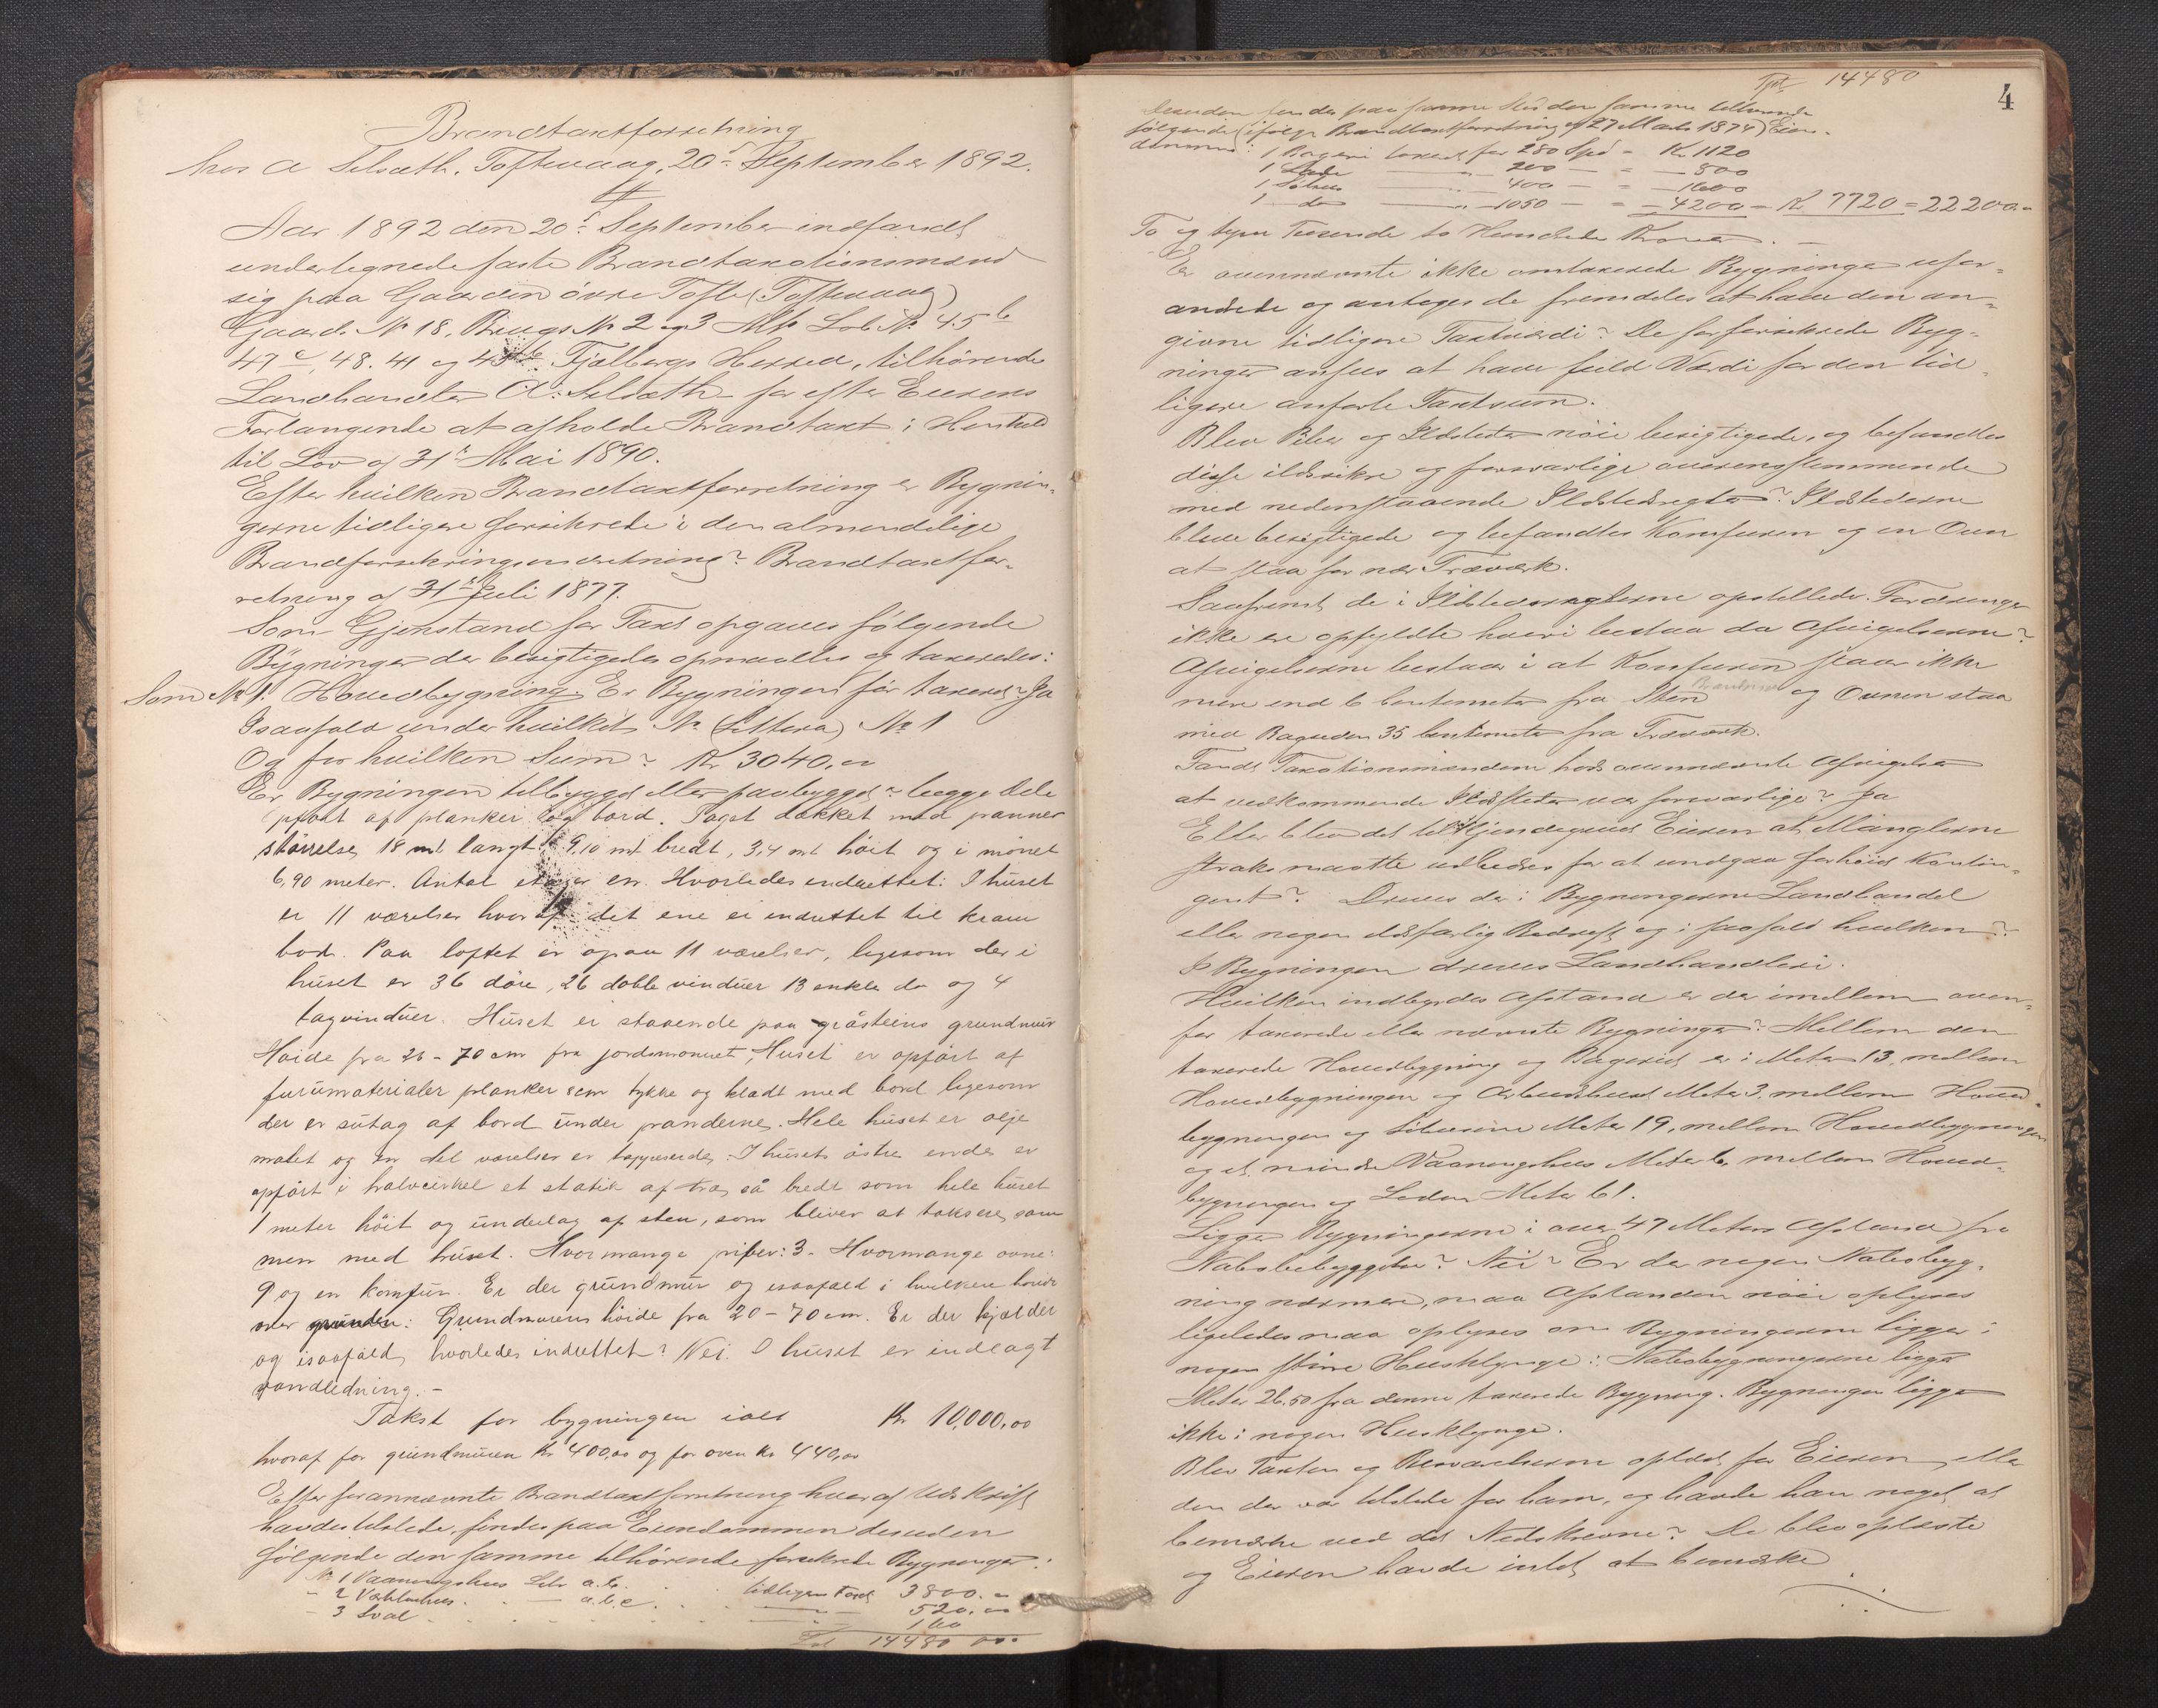 Brandtaxtforretning
hos A Selsæth, Toftevaag, 20de September 1892.
Aar 1892 den 20de September indfandt
undertegnede faste Brandtaxtionsmænd
sig paa Gaarden övre Tofte (Toftevaag)
Gaards No 18. Brugs No 2 og 3 Mtr Lob No 45 b
47 c, 48. 41 og 45 b. Fjelbergs Herred, tilhörende
Landhandler A. Selsæth for efter Eierens
Forlangende at afholde Brandtaxt i Henhold
til Lov af 31te Mai 1890.
Efter hvilken Brandtaxtforretning er Bygnin-
gerne tidligere forsikrede i den almindelige
Brandforsikringsindretning? Brandtaxtfor-
retning af 31te Juli 1877.
Som Gjenstand for Taxt opgaves følgende
Bygninger der besigtigedes opmaaltes og taxeredes:
Som No 1. Hovedbygning. Er Bygningen før taxeret? Ja
Isaafald under hvilket No (Littera) No 1
Og for hvilken Sum? Kr 3040,00
Er Bygningen tilbygget eller paabygget? begge dele
opført af planker og bord. Taget dækket med panner
størrelse, 18 mt langt 9,10 mt bredt, 3,4 mt höit og i mönet
6,90 meter. Antal etager en. Hvorledes indrettet: I huset
er 11 værelser hvoraf det ene er indrettet til kram
bod. Paa loftet er ogsaa 11 værelser, ligesom der i
huset er 36 döre, 26 doble vinduer 13 enkle do og 4
tagvinduer. Huset er staaende paa gråsteins grundmur
Høide fra 20 - 70 cm fra jordsmonnet, Huset er opført af
furumaterialer planker 8 cm tykke og klædt med bord ligesom
der er sutag af bord under panderne. Hele huset er olje
malet og en del værelser er tapeserede. I husets östre ende er
opført i halvcirkel et statik af træ, så bredt som hele huset
1 meter höit og underlag af sten, som bliver at taksere sam
men med huset. Hvormange piber: 3. Hvormange ovne:
9 og en komfur. Er der grundmur og isaafald i hvilken høide
over grunden: Grundmurens høide fra 20 - 70 cm. Er der kjælder
og isaafald, hvorledes indrettet? Nei. I huset er indlagt
vandledning. -
Takst for bygningen ialt Kr 10,000,00
hvoraf for grundmuren Kr 400,00 og for oven Kr 440,00
Efter forannævnte Brandtaxtforretning hvoraf Udskrift
havdes tilstede, findes paa Eiendommen desuden
følgende den samme tilhörende forsikrede Bygninger:
No 1 Vaaningshus Litr a.b. . . tidligere Taxt 3800.00
- 2 . . — a.b.c. . . — 520.00
- 3 Sval . . . 160
Tpt 14480 00
4
Tpt 14480
desuden findes paa samme Sted den samme tilhørende
følgende (ifølge Brandtaxtforretning af 27 Marts 1874) Eien-
domme: 1 Bageri taxeret for 280 Spd = Kr 1120
1 Lade — " 200 — = — 800
1 Söhus — " 400 — = — 1600
1 do — " 1050 — = — 4200 = Kr 7720 = 22200.00
To og tyve Tusende to Hundrede Kroner. —
Er ovennævnte ikke omtaxerede Bygninger ufor-
andrede og antages de fremdeles at have den an-
givne tidligere Taxtværdi? De før forsikrede Byg-
ninger ansees at have fuld Værdi for den tid-
ligere anførte Taxtsum.
Blev Piber og Ildsteder nöie besigtigede, og befandtes
disse ildsikre og forsvarlige overensstemmende
med nedenstaaende Ildstedsregler? Ildstederne
bleve besigtigede og befandtes Komfuren og en Ovn
at staa for nær Træværk.
Saafremt de i Ildstedsreglerne opstillede Fordringer
ikke ere opfyldte hvori bestaa da Afvigelserne?
Afvigelserne bestaar i at Komfuren staar ikke
mere end 6 Centemeter fra Sten og Ovnen staa
med Bagsiden 35 Centimeter fra Træværk.
Fandt Taxationsmændene trods ovennævnte Afvigelser
at vedkommende Ildsteder var forsvarlige? Ja
Eller blev det tilkjendegivet Eieren at Manglerne
straks maatte udbedres for at undgaa forhöiet Kontin-
gent? Drives der i Bygningerne Landhandel
eller nogen ildsfarlig Bedrift og i saafald hvilken?
I Bygningen drives Landhandleri.
Hvilken indbyrdes Afstand er der imellem oven-
for taxerede eller nævnte Bygninger? Mellem den
taxerede Hovedbygning og Bageriet er i Meter 13, mellem
Hovedbygningen og Meter 3, mellem Hoved-
bygningen og Söhusene Meter 19, mellem Hovedbygningen
og et mindre Vaaningshus Meter 6, mellem Hoved-
bygningen og Laden Meter 61.
Ligger Bygningerne i over 47 Meters Afstand fra
Nabobebyggelse? Nei? Er der nogen Nabobyg-
ning nærmere, maa Afstanden nöie oplyses
ligeledes maa oplyses om Bygningerne ligger i
nogen större Husklynge: Nabobygningerne ligger
Meter 26.50 fra denne taxerede Bygning. Bygningen ligger
ikke i nogen Husklynge.
Blev Taxten og Besvarelserne oplæst for Eieren, eller
den der var tilstede for ham, og havde han noget at
bemærke ved det Nedskrevne? De blev oplæste
og Eieren havde intet at bemærke